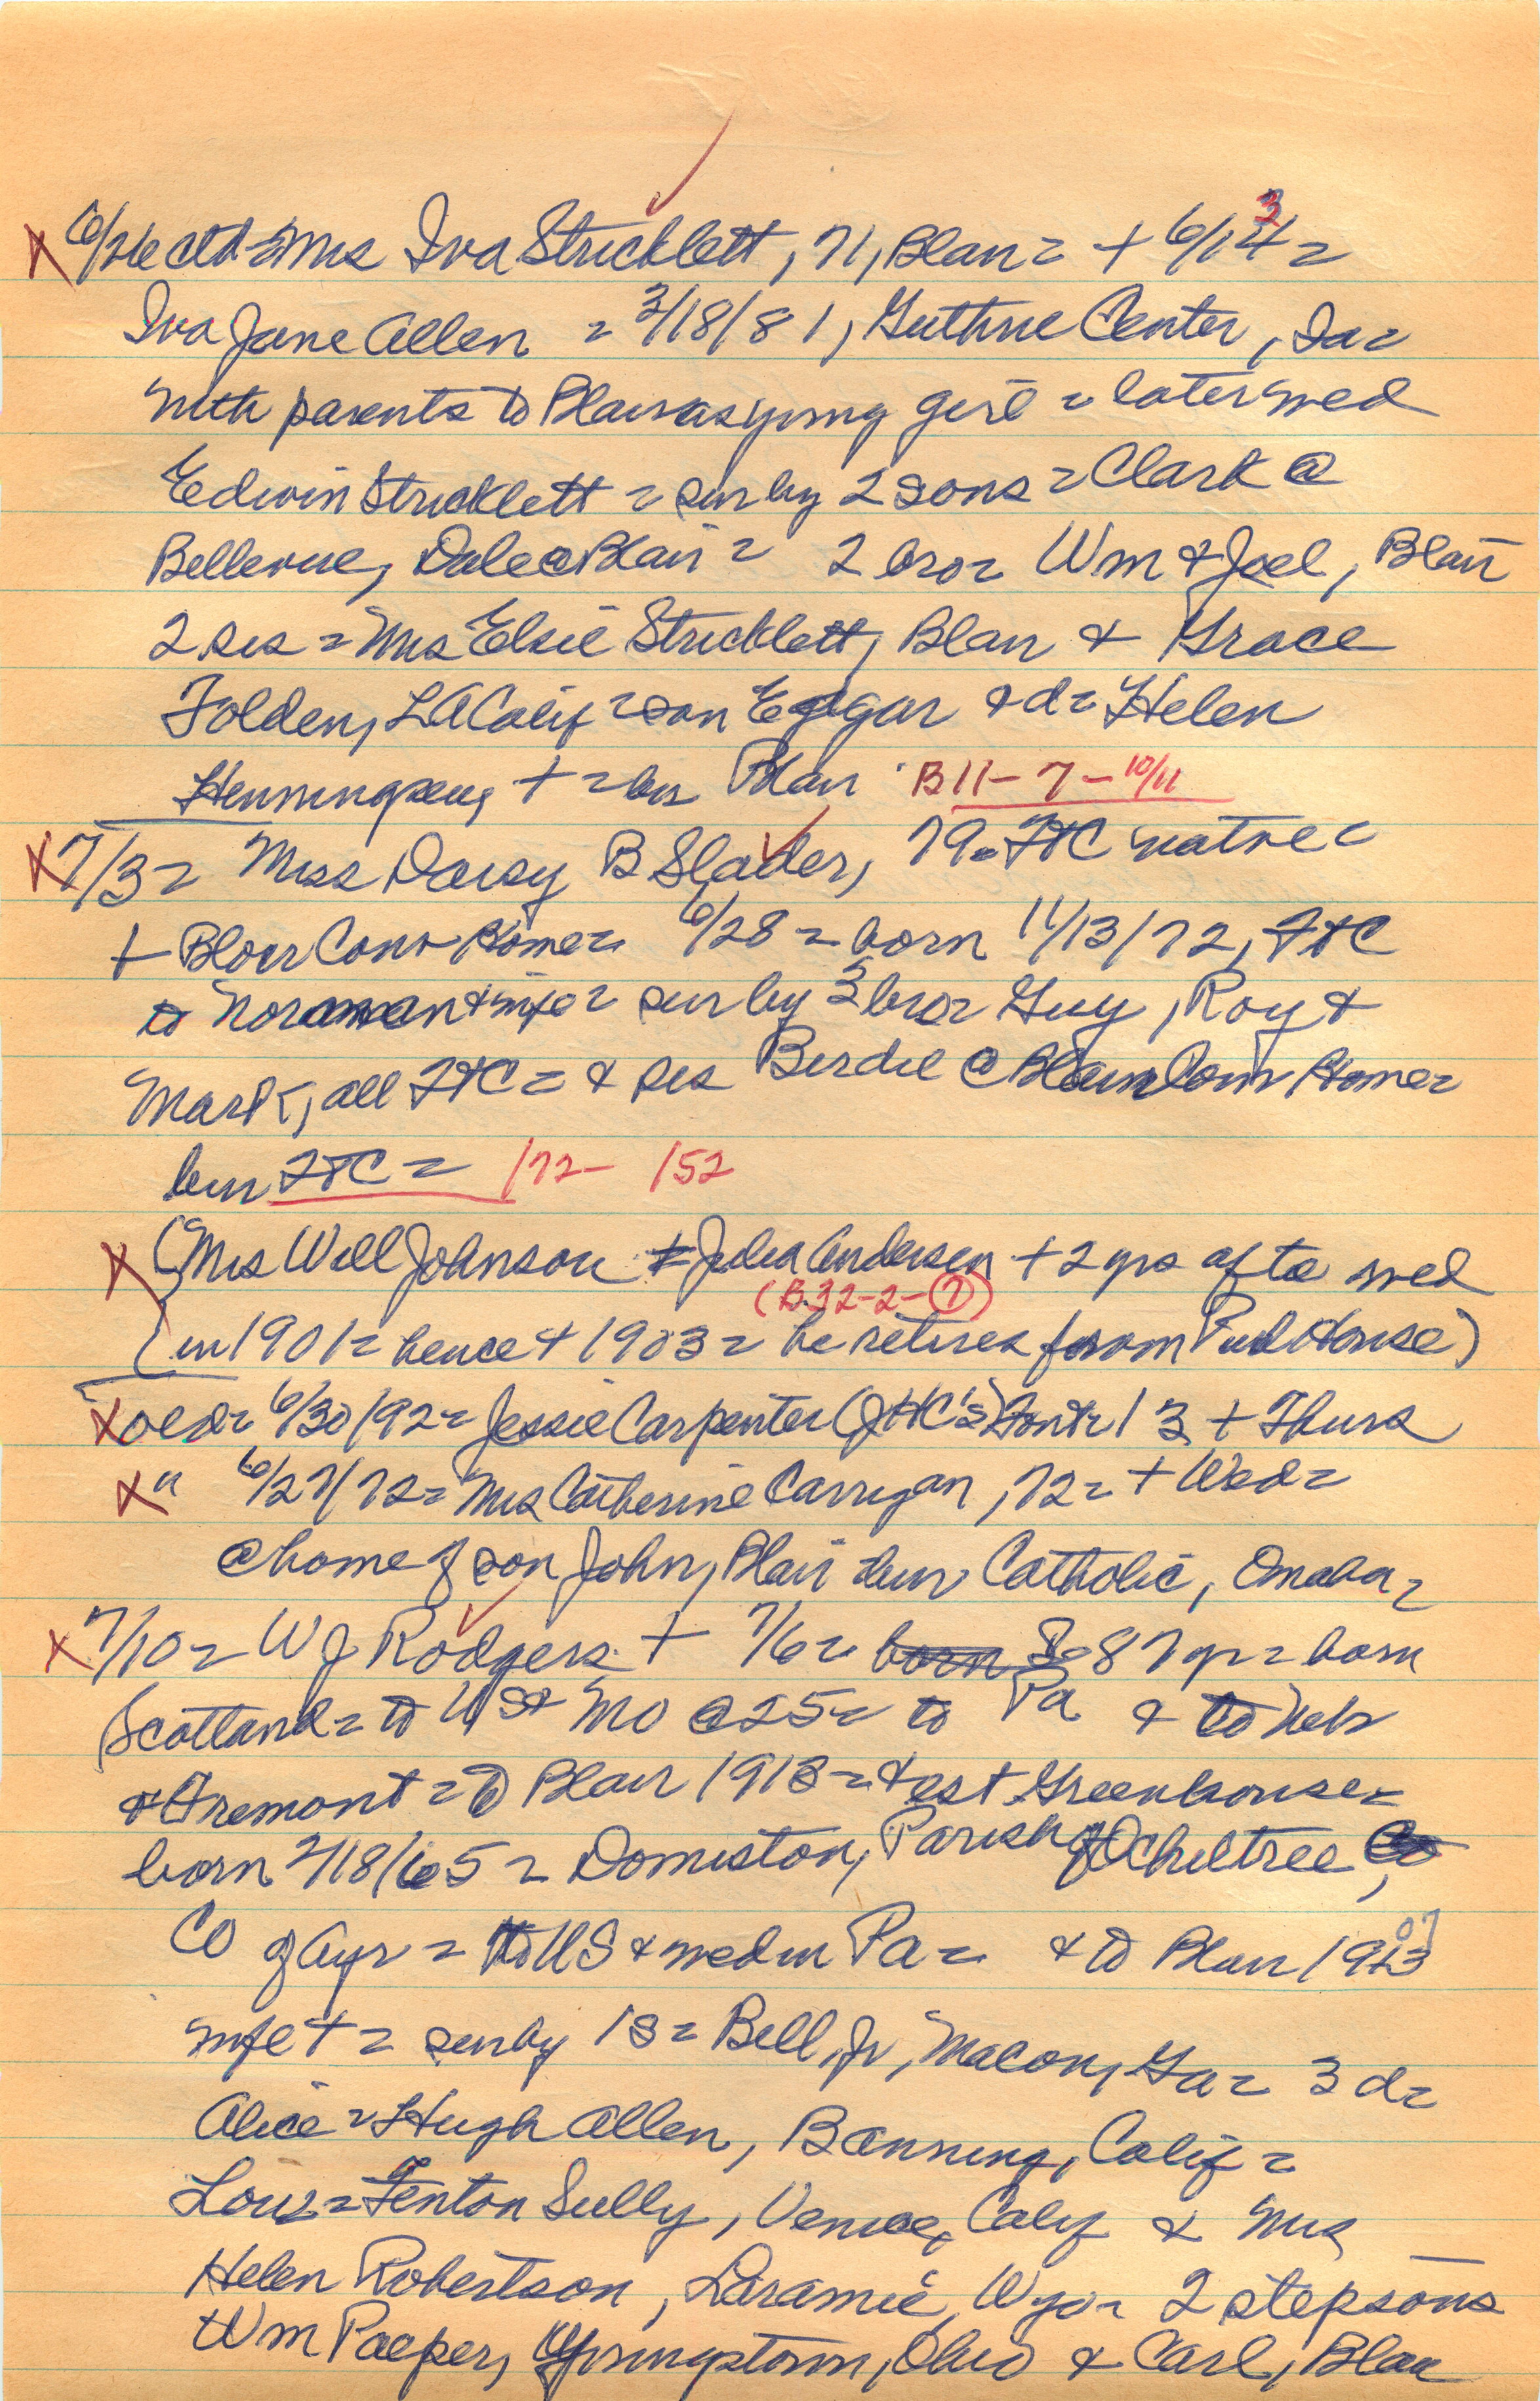 X 6/26 ctd = Mrs Iva Stricklett, 71, Blair = + 6/14 3 =
Iva Jane Allen = 3/18/81, Guthrie Center, Ia =
with parents to Blair as young girl = later wed
Edwin Stricklett = sur by 2 sons = Clark @
Bellevue, Dale @ Blair = 2 bro = Wm & Joel, Blair
2 sis = Mrs Elsie Stricklett, Blair & Grace
Folden, LA Calif = son Edgar & d = Helen
Henningsen, + = bur Blair B11-7-10/11
X 7/3 = Miss Daisy B Slader, 79 = FTC native =
+ Blair Conv Home = 6/28 = born 11/13/72, FTC
to Norman & wife = sur by 3 bro = Guy, Roy &
Mark, all FTC = & sis Berdie @ Blair Conv Home =
bur FTC = 172- 152
X (Mrs Will Johnson = Julia Andersen + 2 yrs after wed
(B.32-2-7)
in 1901 = hence + 1903 = he retires from Pub House)
X oed = 6/30/92 = Jessie Carpenter (JHC's) 13 + Thurs
X " 6/27/72 = Mrs Catherine Carrigan, 72 = + Wed =
@ home of son John, Blair bur Catholic, Omaha =
X 7/10 = W J Rodgers + 7/6 = born 87 yr = born
Scotland = to US & Mo @ 25 = to Pa & to Neb
& Fremont = to Blair 1913 = & est Greenhouse =
born 2/18/65 = Domiston, Parish of Ochiltree, Co
Co of Ayr = to US & wed in Pa = & to Blair 1913 07
wife + = sur by 1 s = Bill, Jr, Macon, Ga = 3 d =
Alice = Hugh Allen, Banning, Calif =
Lois = Fenton Sully, Venice, Calif & Mrs
Helen Robertson, Laramie, Wyo = 2 stepsons
Wm Paeper, Youngstown, Ohio & Carl, Blair